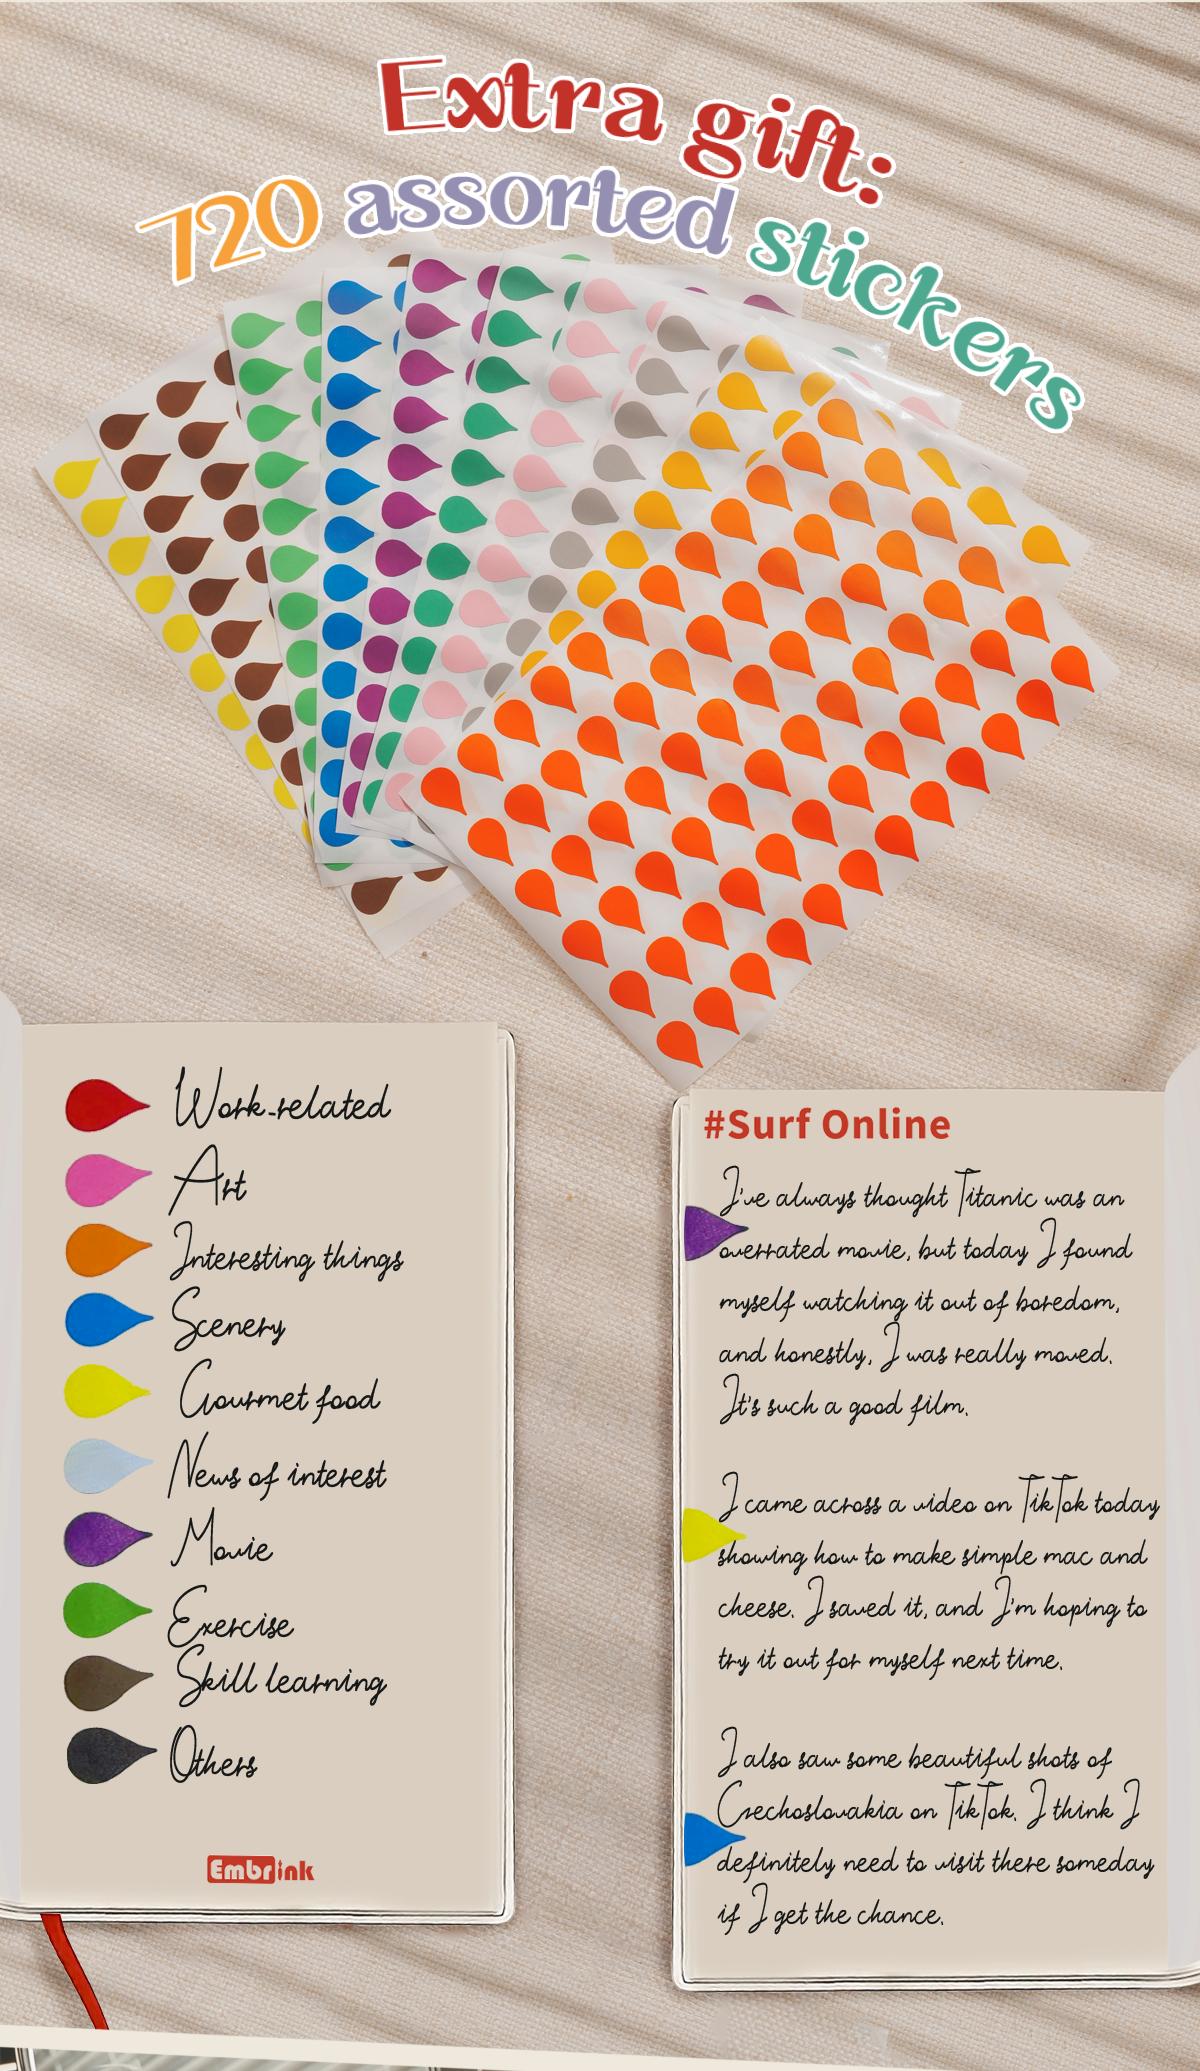 Extra gift:
720 assorted stickers
Work-related
Art
Interesting things
Scenery
Gourmet food
News of interest
Movie
Exercise
Skill learning
Others
Embrink
#Surf Online
I've always thought Titanic was an
overrated movie, but today I found
myself watching it out of boredom,
and honestly, I was really moved.
It's such a good film.
I came across a video on TikTok today
showing how to make simple mac and
cheese. I saved it, and I'm hoping to
try it out for myself next time.
I also saw some beautiful shots of
Czechoslovakia on TikTok. I think I
definitely need to visit there someday
if I get the chance.